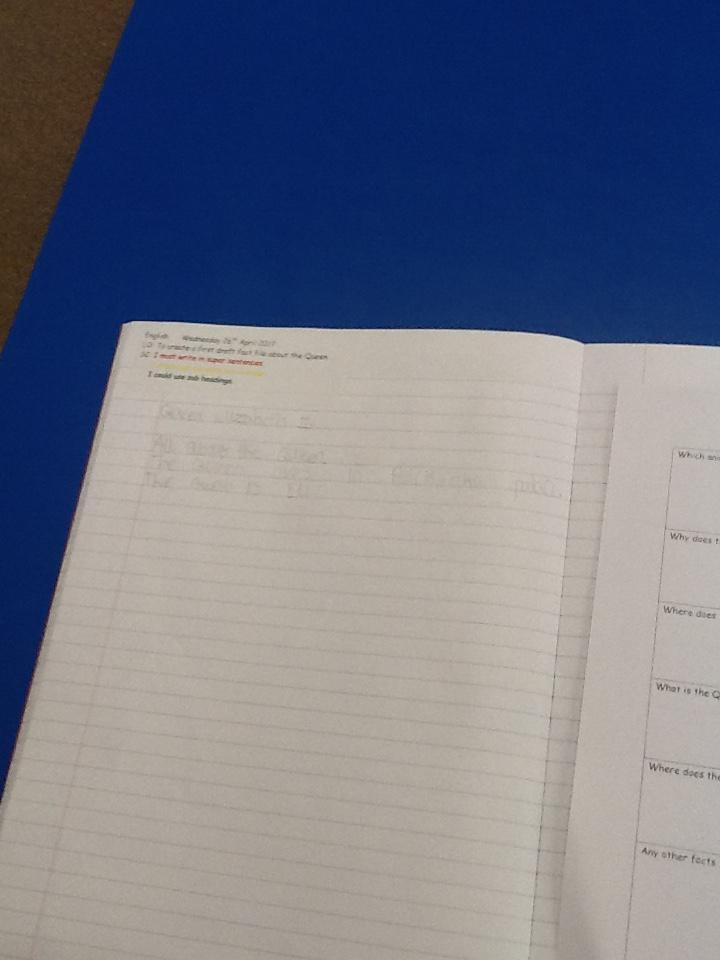 English Wednesday 26th April 2017
LO: To create a first draft fact file about the Queen
SC: I must write in super sentences
I could use sub headings
Queen Elizabeth II
All about the Queen
The Queen in
The Queen is
Which
Why does t
Where does
What is the Q
Where does the
Any other facts